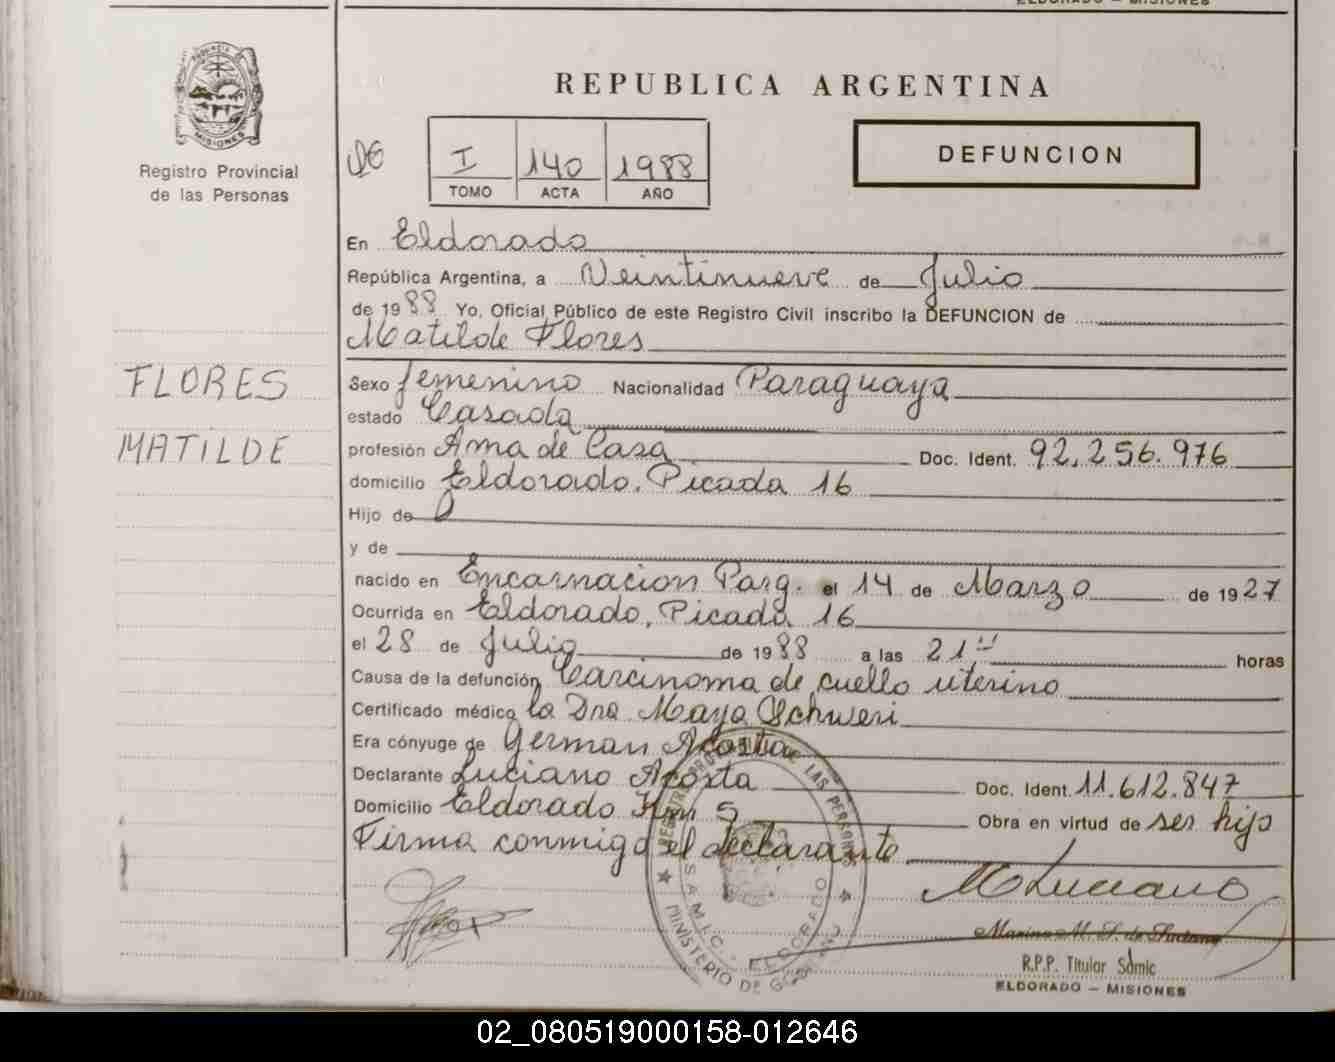 ELDORADO – MISIONES
PROVINCIA DE
MISIONES
Registro Provincial
de las Personas
REPUBLICA ARGENTINA
I 140 1988
TOMO ACTA AÑO
DEFUNCION
En Eldorado
República Argentina, a Veintinueve de Julio
de 1988 Yo, Oficial Público de este Registro Civil inscribo la DEFUNCION de
Matilde Flores
FLORES
MATILDE
Sexo femenino Nacionalidad Paraguaya
estado Casada
profesión Ama de Casa Doc. Ident. 92.256.976
domicilio Eldorado, Picada 16
Hijo de
y de
nacido en Encarnacion Parg. el 14 de Marzo de 1927
Ocurrida en Eldorado, Picada 16
el 28 de Julio de 1988 a las 21 horas
Causa de la defunción Carcinoma de cuello uterino
Certificado médico la Dra Maya Schweri
Era cónyuge de German Acosta
Declarante Luciano Acosta Doc. Ident. 11.612.847
Domicilio Eldorado Km 5 Obra en virtud de ser hijo
Firma conmigo el declarante
REGISTRO PROVINCIAL DE LAS PERSONAS
SAMIC. - ELDORADO
MINISTERIO DE GOBIERNO
M Luciano
R.P.P. Titular Samic
ELDORADO – MISIONES
02_080519000158-012646